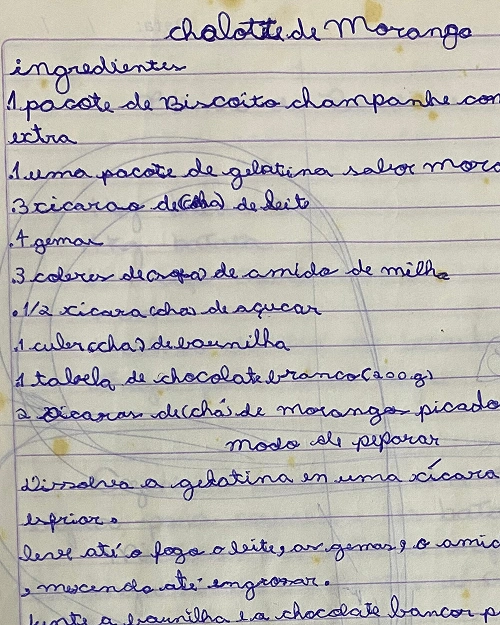 chalotte de Morango
ingredientes
1 pacote de Biscoito champanhe con
extra
.1 uma pacote de gelatina sabor mora
.3 xicaras de(cha) de leite
.4 gemas
.3 coleres de(sopa) de amido de milho
.1/2 xicara(cha) de açucar
.1 culer(cha) de baunilha
1 tablela de chocolate branco(200.g)
2 xicaras de(chá) de morango picado
modo de peparar
Dissolva a gelatina en uma xícara
esfriar.
leve até o fogo o leite, as gemas, o amid
, mexendo até engrossar.
Junte a baunilha e a chocolate bancor p